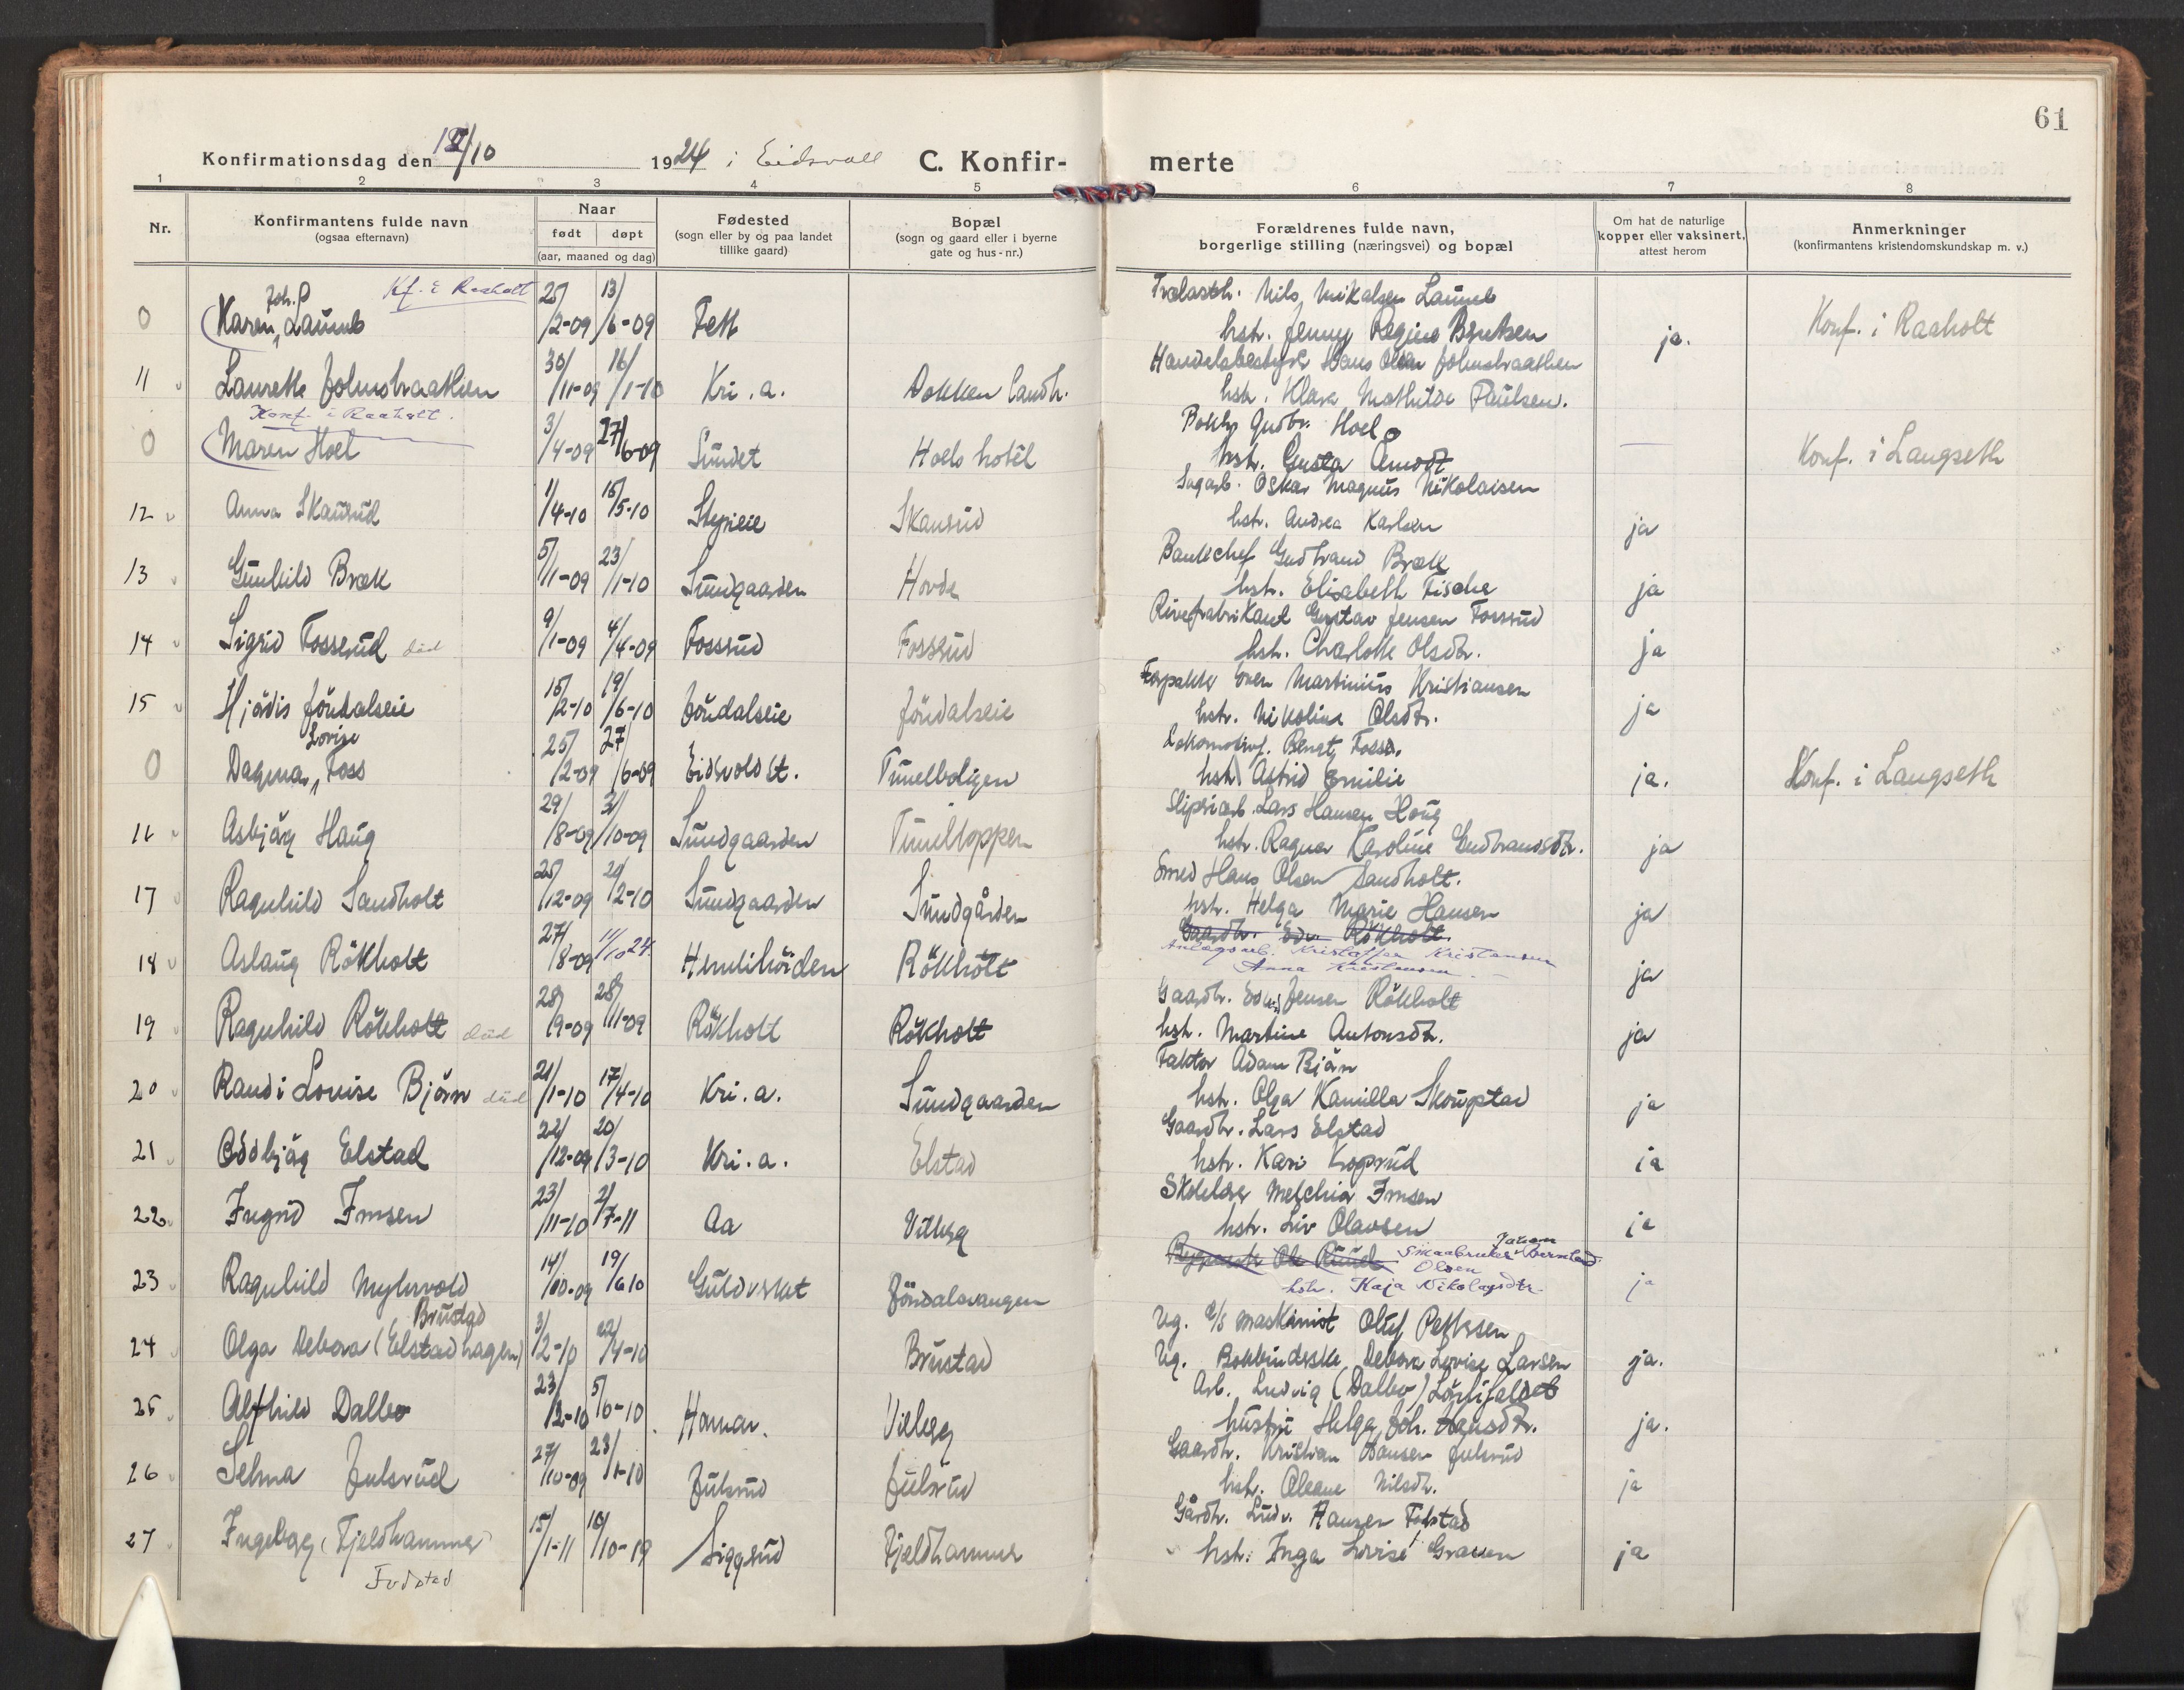 61
Konfirmationsdag den 12/10 1924 i Eidsvoll C. Konfir- merte
1 2 3 4 5 6 7 8
Nr.
Konfirmantens fulde navn
(ogsaa efternavn)
Naar
født døpt
(aar, maaned og dag)
Fødested
(sogn eller by og paa landet
tillike gaard)
Bopæl
(sogn og gaard eller i byerne
gate og hus-nr.)
Forældrenes fulde navn,
borgerlige stilling (næringsvei) og bopæl
Om hat de naturlige
kopper eller vaksinert,
attest herom
Anmerkninger
(konfirmantens kristendomskundskap m. v.)
Kf. i Raaholt
Joh.
0 Karen Laumb 25/2-09 13/6-09 Fett
Trælasth. Nils Mikalsen Laumb
hstr. Jenny Regine Berntsen ja. Konf. i Raaholt
11 Laurette Johnstraathen 30/11-09 16/1-10 Kri.a. Dokken landh.
Handelsbestyr Hans Olsen Johnstraathen
hstr. Klara Mathilde Paulsen.
Konf. i Raaholt.
0 Maren Hoel 3/4-09 27/6-09 Sundet Hoels hotel
Gudbr. Hoel
hstr. Gusta — Konf. i Langseth
12 Anna Skausud 1/4-10 15/5-10 Styrieie Skausud
Sagarb. Oskar Magnus Nikolaisen
hstr. Andrea Karlsen ja
13 Gunhild Bræk 5/11-09 23/1-10 Sundgaarden Hovde
Bankchef Gudbrand Bræk
hstr. Elisabeth Fische ja
14 Sigrid Fosserud død 9/1-09 4/4-09 Fossrud Fossrud
Rivefabrikant Gustav Jensen Fossrud
hstr. Charlotte Olsdtr. ja
15 Hjördis Jöndalseie 15/2-10 19/6-10 Jöndalseie Jöndalseie
Forpakter Even Martinius Kristiansen
hstr. Nikoline Olsdtr. ja
Lovise
0 Dagmar Foss 25/2-09 27/6-09 Eidsvold st. Tunelboligen
Lokomotivf. Bengt Foss.
hstr. Astrid Emilie ja. Konf. i Langseth
16 Asbjörg Haug 29/8-09 31/10-09 Sundgaarden Tuneltoppen
Sliperiarb. Lars Hansen Haug
hstr. Ragna Karoline Gudbrandsdtr. ja
17 Ragnhild Sandholt 25/12-09 20/2-10 Sundgaarden Sundgården
Smed Hans Olsen Sandholt.
hstr. Helga Marie Hansen ja
18 Aslaug Rökholt 27/8-09 11/10 24. Himlihöiden Rökholt
Gaardbr. Edv. Rökholt.
Anlægsarb. Kristoffer Kristensen
Anna Kristensen. ja
19 Ragnhild Rökholt död 28/9-09 28/11-09 Rökholt Rökholt
Gaardbr. Edv. Jensen Rökholt
hstr. Martine Antonsdtr. ja
20 Randi Louise Björn död 21/1-10 17/4-10 Kri.a. Sundgaarden
Faktor Adam Björn
hstr. Olga Kamilla Skougstad ja
21 Oddbjörg Elstad 22/12-09 20/3-10 Kri.a. Elstad
Gaardbr. Lars Elstad
hstr. Kari Koprud ja
22 Ingrid Imsen 23/11-10 2/7-11 Aa Vilberg
Skolelær Melchior Imsen
hstr. Liv Olavsen ja
23 Ragnhild Myhrvold 14/10-09 19/6 10 Guldverket Jöndalsvangen
Ole Ruud Smaabruker Johan Berntad
Olsen
hstr. Kaja Nikolaysdtr. ja
Brustad
24 Olga Debora (Elstadhagen) 3/2-10 22/4-10 Brustad
Ug. E/S maskinist Oluf Pettersen
Ug. Bokbinderske Debora Lovise Larsen ja.
25 Alfhild Dalbo 23/2-10 5/6-10 Hamar. Vilberg
Arb. Ludvig (Dalbo)
hustru Helga Joh. Hansdtr. ja.
26 Selma Julsrud 27/10-09 23/1-10 Julsrud Julsrud
Gaardbr. Kristian Hansen Julsrud
hstr. Oleane Nilsdtr. ja
27 Ingeborg (Fjeldhammer) 15/1-11 10/10-19 Siggerud Fjeldhammer
Fudstad
Gårdbr. Ludv. Hansen Fudstad
hstr. Inga Lovise Gravsen ja